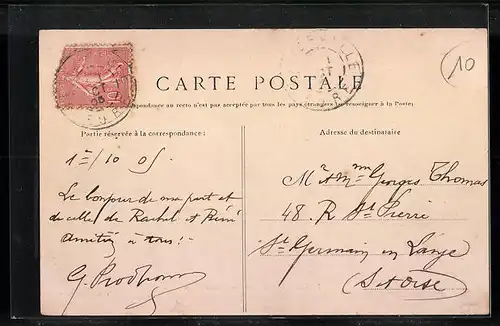 10
CARTE POSTALE
respondance au recto n'est pas acceptée par tous les pays étrangers (se renseigner à la Poste)
Partie réservée à la correspondance:
Adresse du destinataire
1er/10 05
Le bonjour de ma part et
de celle de Rachel et René
Amitiés à tous! -
G. Prodhomme
Mr et Mme Georges Thomas
48. R St Pierre
St Germain en Laye
(S et Oise)